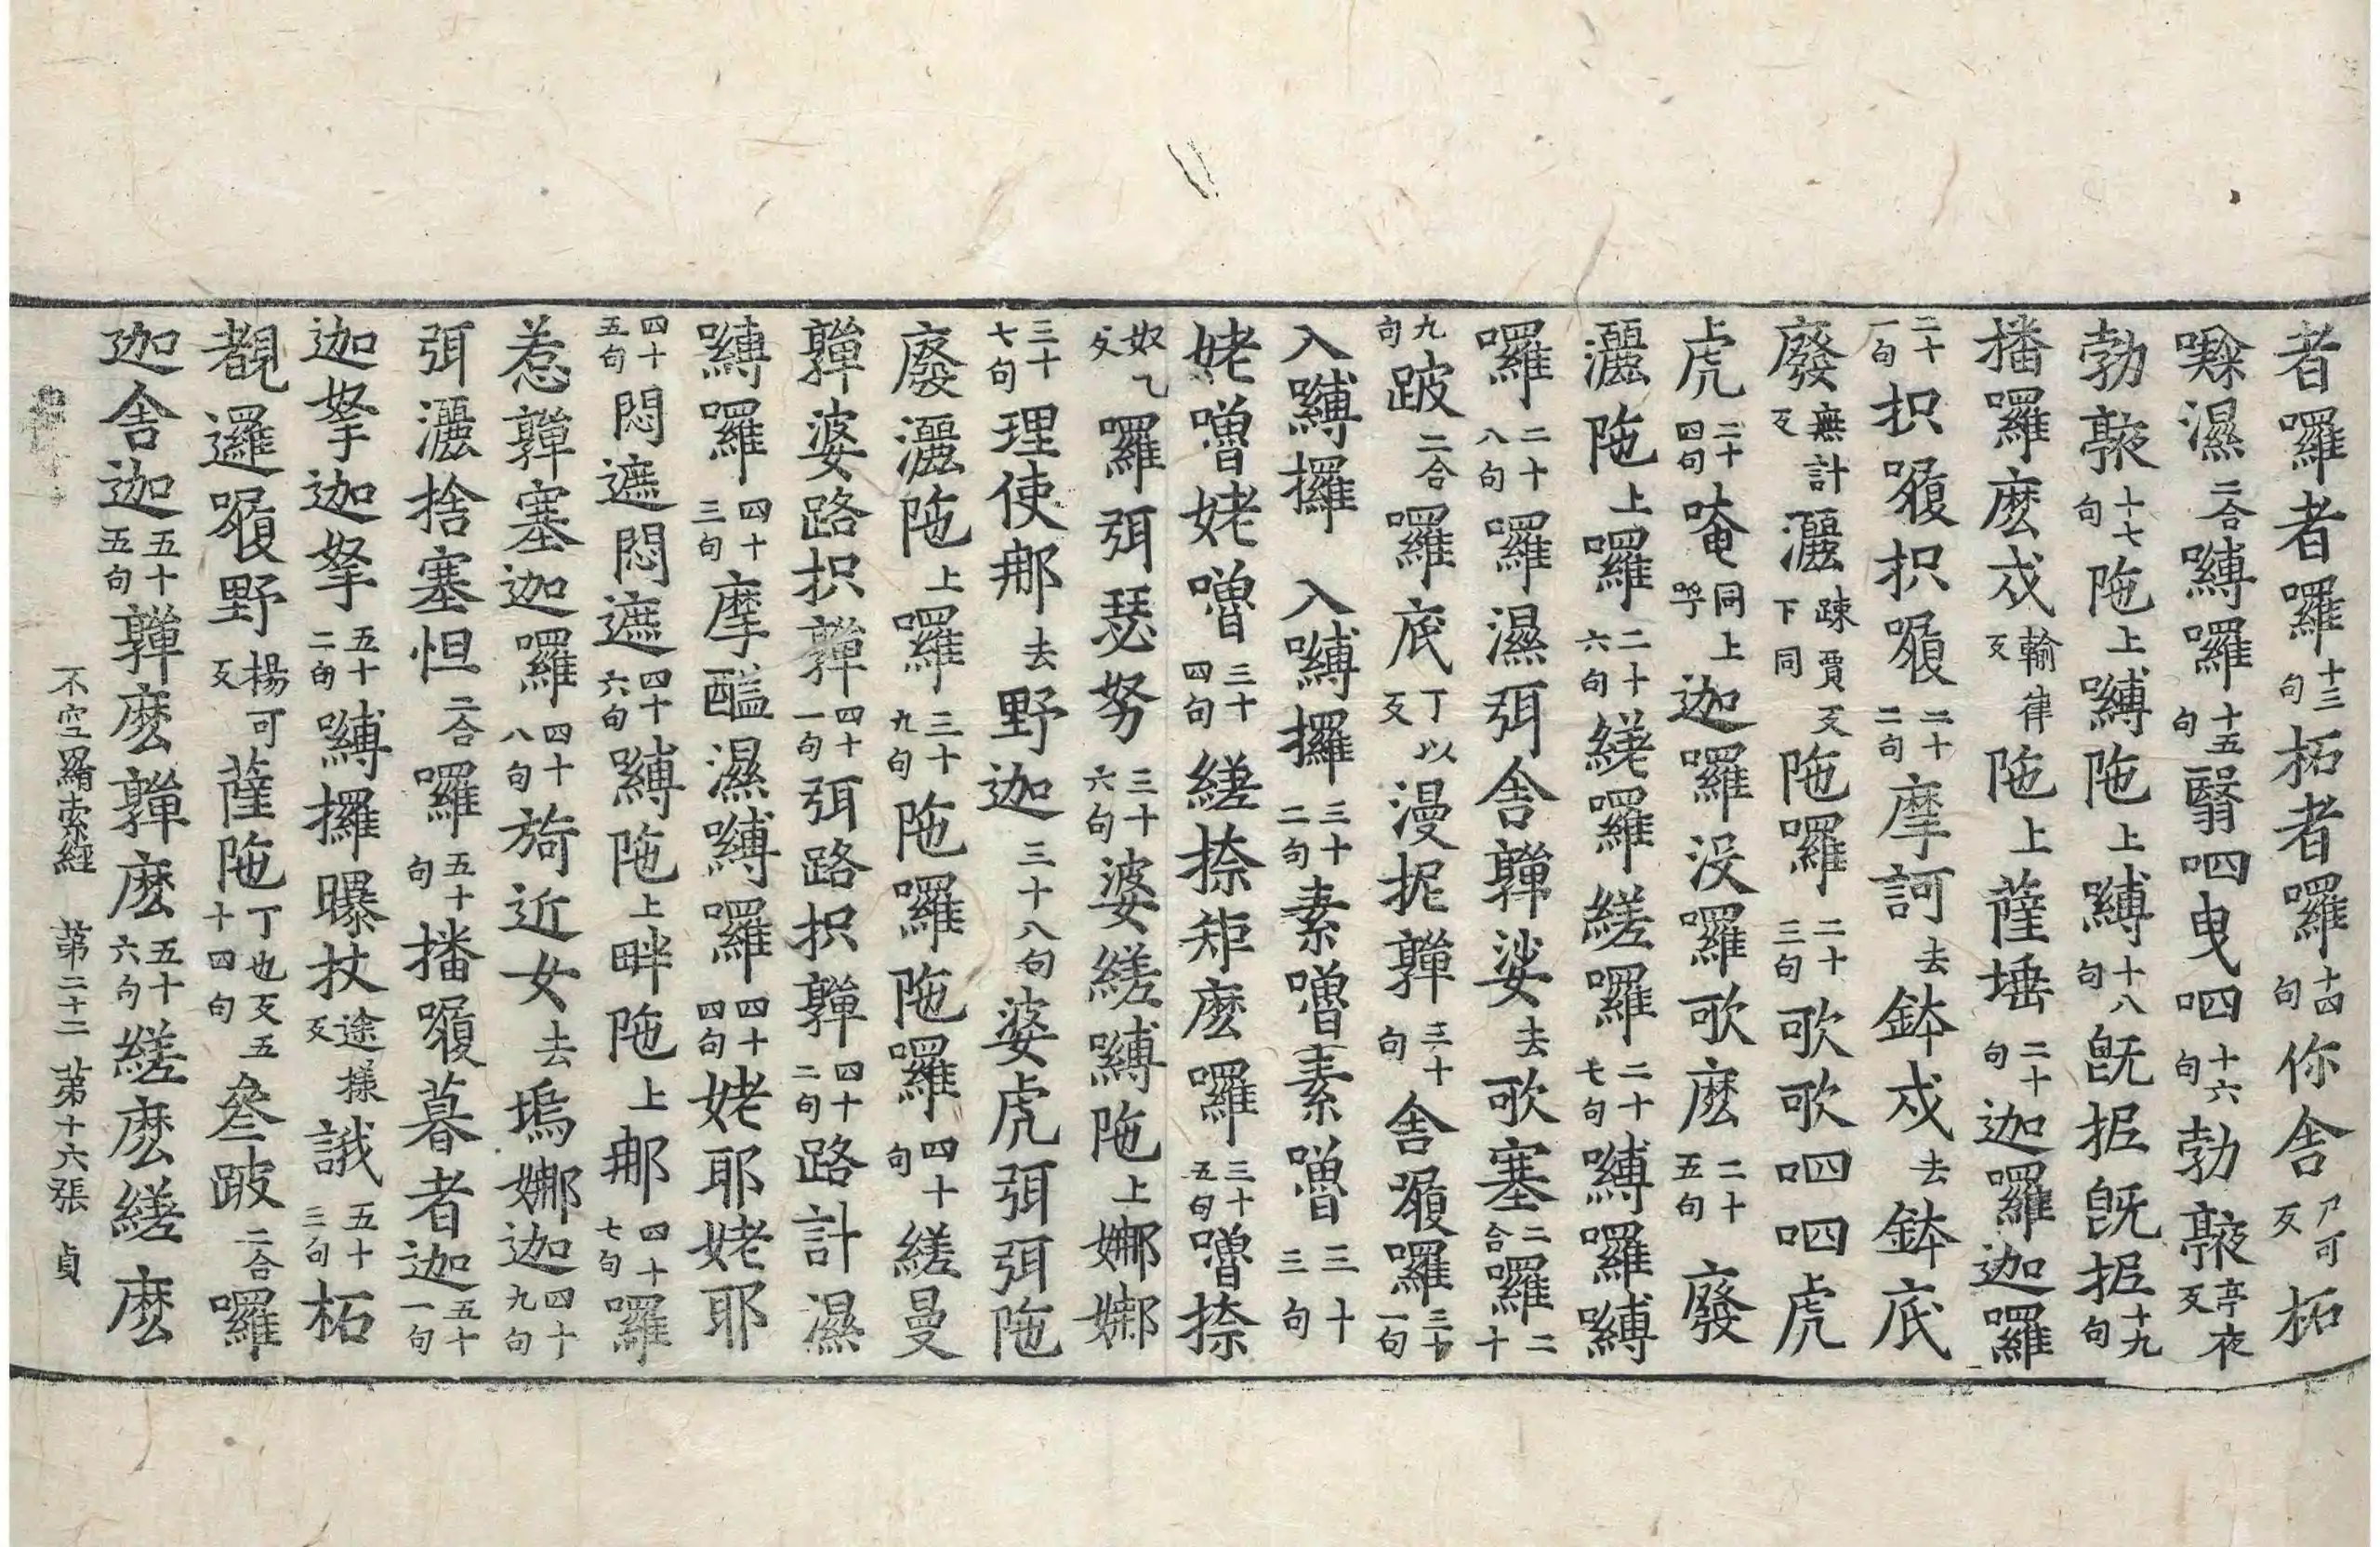 者囉者囉十三句柘者囉十四句你舍尸可反柘
㗚濕二合嚩囉十五句翳呬曳呬十六句勃㰆亭夜反
勃㰆十七句陁上嚩陁上嚩十八句旣抳旣抳十九句
播囉麽戍輸律反陁上薩埵二十句迦囉迦囉
二十一句枳履枳履二十二句摩訶去鉢戍去鉢底
廢無計反灑踈賈反下同陁囉二十三句歌歌呬呬虎
虎二十四句唵同上呼迦囉沒囉歌麽二十五句廢
灑陁上囉二十六句縒囉縒囉二十七句嚩囉嚩
囉二十八句囉濕弭舍鞸娑去歌塞二合囉二十
九句跛二合囉底丁以反漫抳鞸三十句舍履囉三十一句
入嚩攞入嚩攞三十二句素噜素噜三十三句
姥噜姥噜三十四句縒捺矩麽囉三十五句噜捺
囉弭瑟努奴乙反三十六句婆縒嚩陁上娜娜
三十七句理使那去野迦三十八句婆虎弭弭陁
廢灑陁上囉三十九句陁囉陁囉四十句縒曼
鞸婆路枳鞸四十一句弭路枳鞸四十二句路計濕
嚩囉四十三句摩醯濕嚩囉四十四句姥耶姥耶
四十五句悶遮悶遮四十六句嚩陁上畔陁上那四十七句囉
惹鞸塞迦囉四十八句旖近女去塢娜迦四十九句
弭灑捨塞怛二合囉五十句播履暮者迦五十一句
迦拏迦拏五十二句嚩攞曝杖途㨾反誐五十三句柘
覩邏履野楊可反薩陁丁也反五十四句叄跛二合囉
迦舍迦五十五句鞸麽鞸麽五十六句縒麽縒麽
不空羂索經　第二十二　第十六張　貞